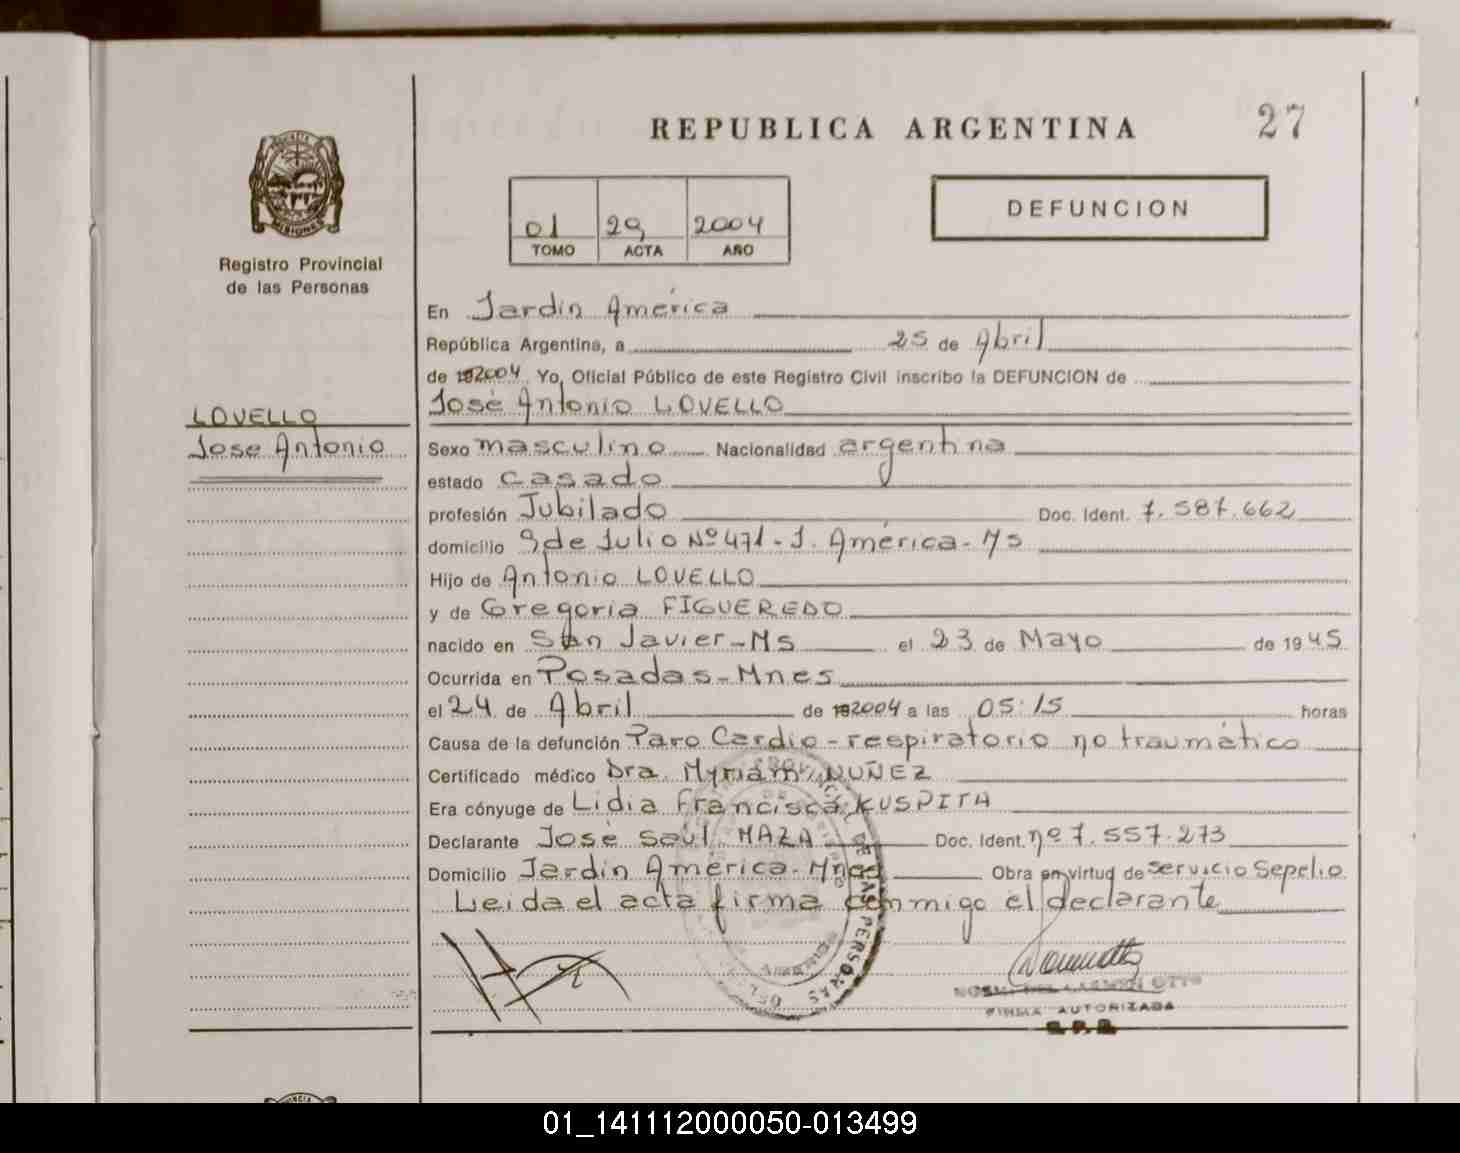 REPUBLICA ARGENTINA
27
PROVINCIA
MISIONES
Registro Provincial
de las Personas
01 29 2004
TOMO ACTA AÑO
DEFUNCION
En Jardín América
República Argentina, a 25 de Abril
de 2004 Yo, Oficial Público de este Registro Civil inscribo la DEFUNCION de
José Antonio LOVELLO
LOVELLO
Jose Antonio
Sexo masculino Nacionalidad argentina
estado casado
profesión Jubilado Doc. Ident. 7.587.662
domicilio 9 de Julio Nº 471 - J. América - Ms
Hijo de Antonio LOVELLO
y de Gregoria FIGUEREDO
nacido en San Javier - Ms el 23 de Mayo de 1945
Ocurrida en Posadas - Mnes
el 24 de Abril de 2004 a las 05:15 horas
Causa de la defunción Paro Cardio - respiratorio no traumático
Certificado médico Dra. Myriam NUÑEZ
Era cónyuge de Lidia Francisca KUSPITA
Declarante José Saúl MAZA Doc. Ident. nº 7.557.273
Domicilio Jardín América - Mnes Obra en virtud de servicio Sepelio
Leida el acta firma conmigo el declarante
DE LAS PERSONAS
FIRMA AUTORIZADA
01_141112000050-013499